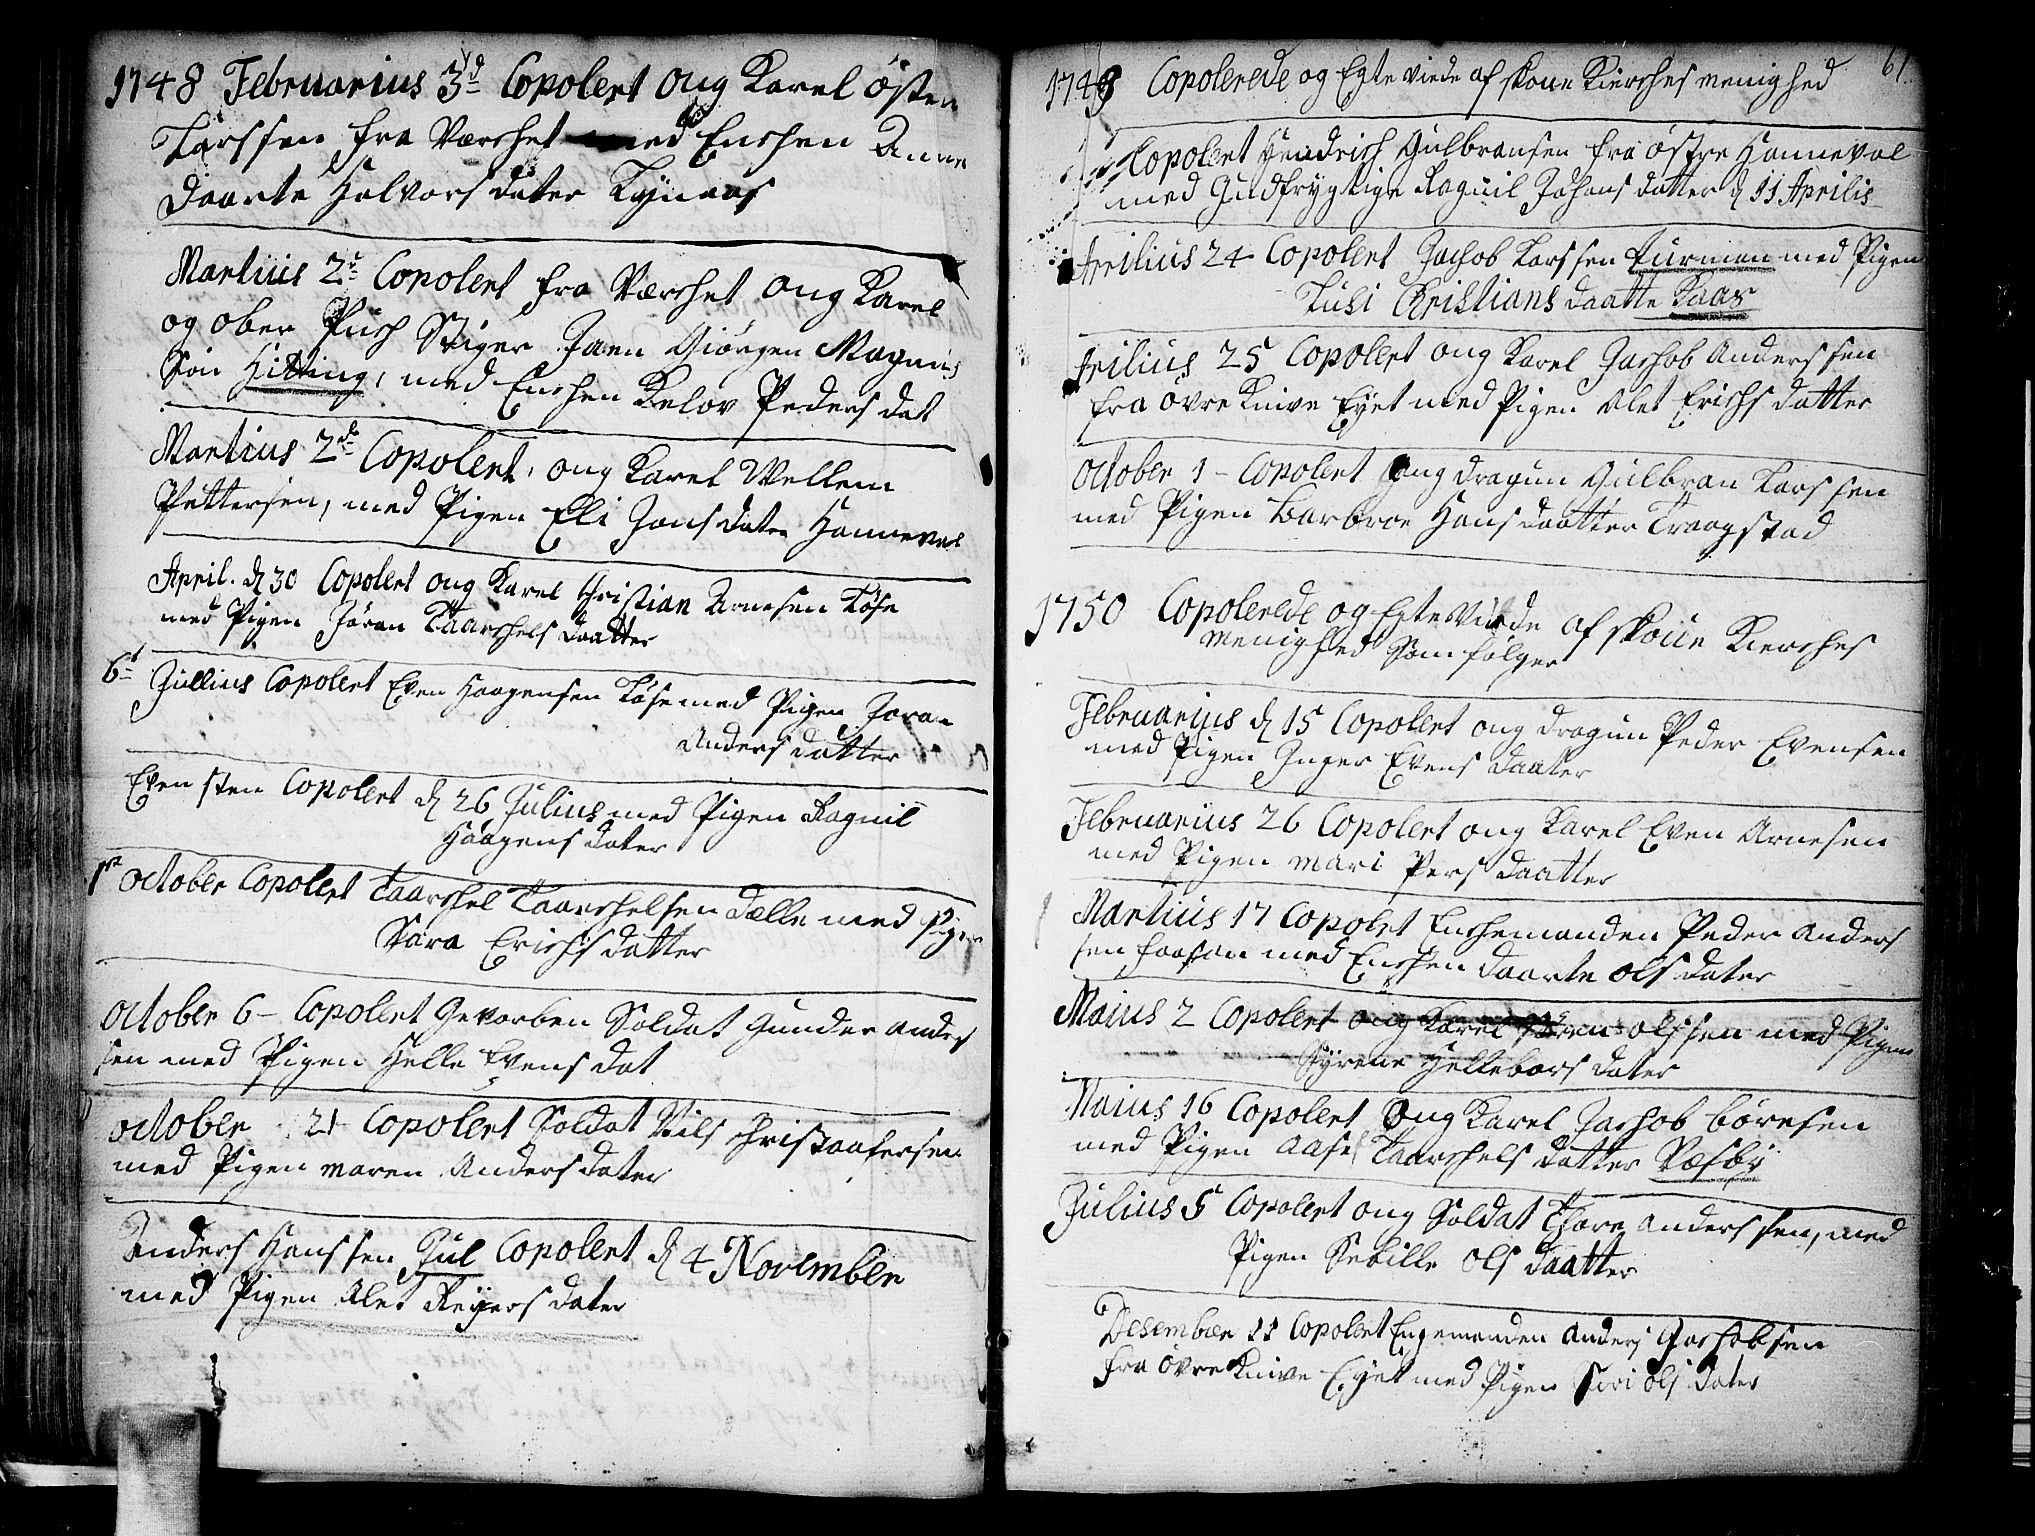 1748 Februarius 3d Copolert ong Karel östen
Larssen fra Værchet med Enchen Anne
Daarte Halvors dater Tynaas
Martius 2d Copolert fra Værchet ong Karel
og ober Puch Stiger Jaen Giörgen Magnus
Sön Hitting, med Enchen Kelov Peders dat
Martius 2d Copolert, ong Karel Wellem
Pettersen, med Pigen Eli Jons dater Hanneval
April. d 30 Copolert ong Karel Christian Arnesen Töse
med Pigen Jöran Taarchels daatter
6t Jullius Copolert Even Haagensen Töse med Pigen Joran
Anders datter
Even sten Copolert d 26 Julius med Pigen Ragnil
Haagens dater
1st october Copolert Taarchel Taarchelsen Dælle med Pigen
Sara Erichs datter
october 6 - Copolert Gevorben Soldat Gunder anders
sen med Pigen Helle Evens dat
october 21 Copolert Soldat Nils Christaafersen
med Pigen maren Anders dater
Anders Hanssen Jul Copolert d 4 November
med Pigen Alet Reyers dater
61
1749 Copolerede og Egte viede af skoue Kierches menighed
Copolert Hendrich Gulbransen fra östre Hanneval
med Gudfrygtige Ragnil Johans datter d 11 Aprilis
Aprilius 24 - Copolert Jachob Larssen turman med Pigen
Lusi Christians daatte Kaas
Aprilius 25 Copolert ong Karel Jachob Anderssen
fra övre Knive Eyet med Pigen Alet Erichs datter
october 1 - Copolert ong dragun Gulbran Larssen
med Pigen Barbroe Hans daatter Traagstad
1750 Copolerede og Egte Viede af skoue Kierches
menighed Som fölger
Februarius d 15 Copolert ong dragun Peder Evensen
med Pigen Inger Evens daater
Februarius 26 Copolert ong Karel Even Arnesen
med Pigen mari Pers daatter
Martius 17 Copolet Enchemanden Peder Anders
sen faasan med Enchen daarte ols dater
Maius 2 Copolert ong Karel olssen med Pigen
Syrene Hellebors dater
Maius 16 Copolert ong Karel Jachob böresen
med Pigen Aase Taarchels datter Væsby
Julius 5 Copolert ong Soldat Thore anderssen, med
Pigen Sebille ols daatter
Desember 11 Copolert Engemanden Anders Jachobsen
fra övre Knive Eyet med Pigen Siri ols dater